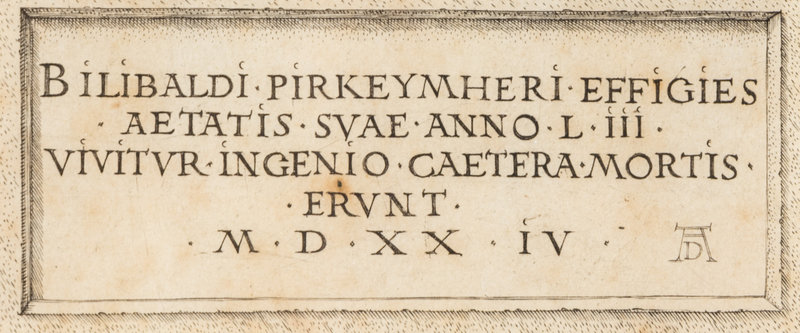 BiLiBALDI·PiRKEYMHERi·EFFiGiES
·AETATiS·SVAE·ANNO·L·iii·
VIVITVR·iNGENiO·CAETERA·MORTiS·
·ERVNT·
·M·D·XX·iV·
AD